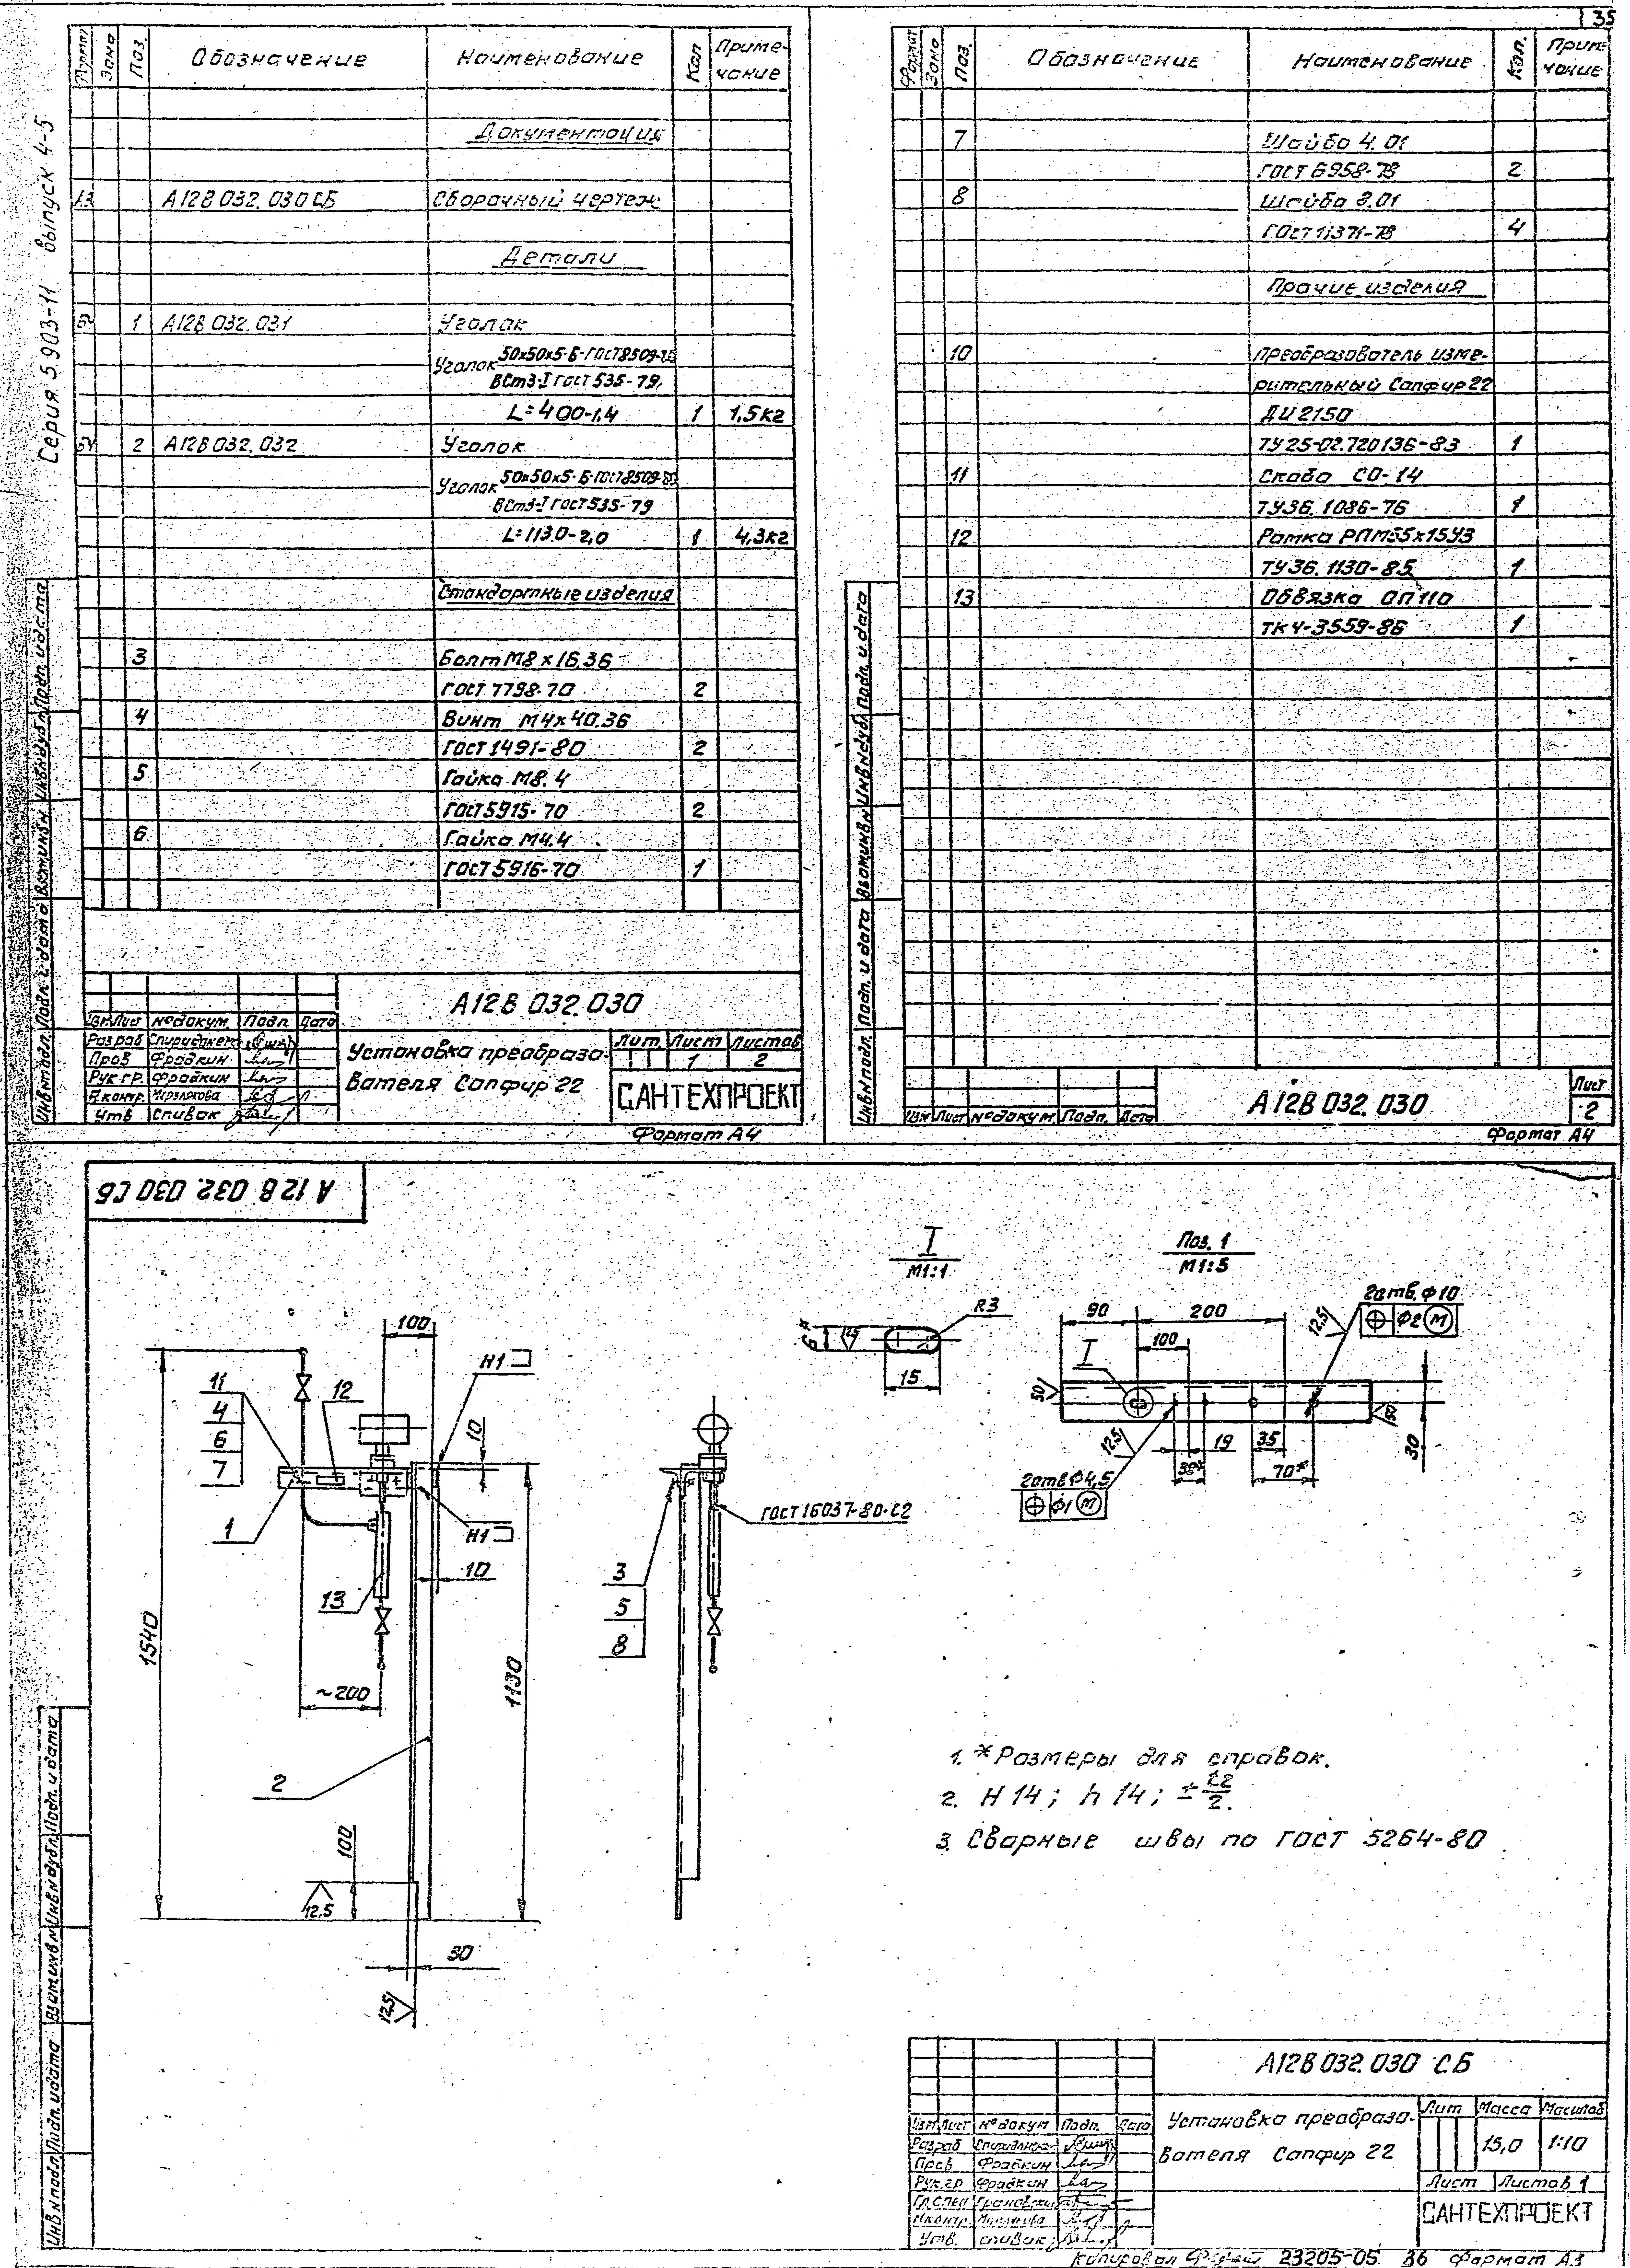 35
Серия 5.903-11 выпуск 4-5
Формат Зона Поз. Обозначение Наименование Кол Приме-
чание
Документация
А3 А12В 032.030 СБ Сборочный чертеж
Детали
БЧ 1 А12В 032.031 Уголок
Уголок 50х50х5-Б-ГОСТ8509-
ВСт3-I ГОСТ 535-79
L=400-1,4 1 1,5кг
БЧ 2 А12В 032.032 Уголок
Уголок 50х50х5-Б-ГОСТ8509-
ВСт3-I ГОСТ 535-79
L=1130-2,0 1 4,3кг
Стандартные изделия
3 Болт М8х16.36
ГОСТ 7798-70 2
4 Винт М4х40.36
ГОСТ 1491-80 2
5 Гайка М8.4
ГОСТ 5915-70 2
6 Гайка М4.4
ГОСТ 5916-70 1
А12В 032.030
Изм Лист № докум. Подп. Дата
Разраб
Пров Фрадкин
Рук.гр. Фрадкин
Н.контр.
Утв Спивак
Установка преобразо-
вателя Сапфир 22
Лит. Лист Листов
1 2
САНТЕХПРОЕКТ
Формат А4
Инв № подл. Подп. и дата Взам инв № Инв № дубл Подп. и дата
Формат Зона Поз. Обозначение Наименование Кол. Приме-
чание
7 Шайба 4.01
ГОСТ 6958-78 2
8 Шайба 8.01
ГОСТ 11371-78 4
Прочие изделия
10 Преобразователь изме-
рительный Сапфир 22
ДИ 2150
ТУ 25-02.720136-83 1
11 Скоба СО-14
ТУ36.1086-76 1
12 Рамка РПМ55х15У3
ТУ36.1130-85 1
13 Обвязка ОП110
ТК4-3559-86 1
Инв № подл. Подп. и дата Взам инв № Инв № дубл Подп. и дата
Изм Лист № докум. Подп. Дата
А12В 032.030
Лист
2
Формат А4
А12В 032.030 СБ
I
М1:1
R3
6*
15
Поз. 1
М1:5
90 200
100
I
2отв. ф10
ф2 М
12,5
50
12,5
19 35
70*
30
2отв ф4,5
ф1 М
100
Н1
10
11
4
6
7
12
1
Н1
10
13
1540
~200
1130
2
100
12,5
30
12,5
3
5
8
ГОСТ 16037-80-С2
1. *Размеры для справок.
2. Н14; h14; ± t2
2.
3. Сварные швы по ГОСТ 5264-80
Инв № подл Подп. и дата Взам инв № Инв № дубл Подп. и дата
А12В 032.030 СБ
Изм Лист № докум Подп. Дата
Разраб
Пров Фрадкин
Рук.гр Фрадкин
Гр.спец
Н.контр.
Утв. Спивак
Установка преобразо-
вателя Сапфир 22
Лит Масса Масштаб
15,0 1:10
Лист Листов 1
САНТЕХПРОЕКТ
Копировал 23205-05 36 Формат А3